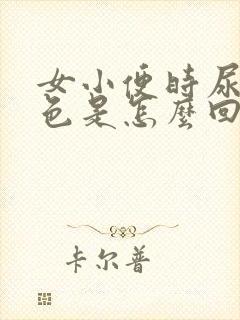 女小便时尿
色是怎麼回
卡尔普